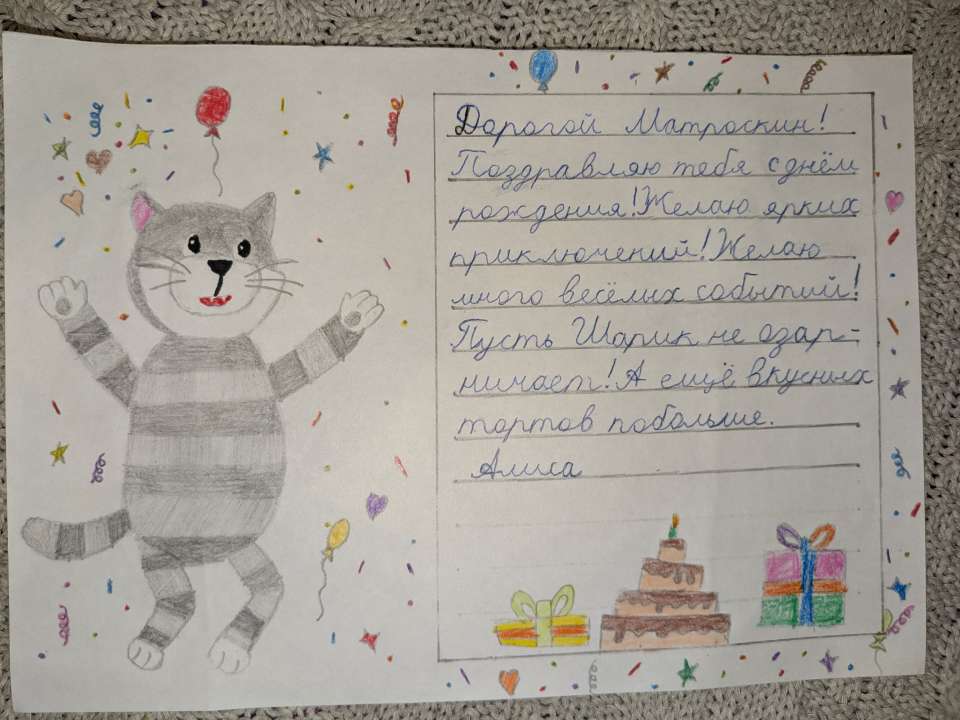 Дорогой Матроскин!
Поздравляю тебя с днём
рождения! Желаю ярких
приключений! Желаю
много весёлых событий!
Пусть Шарик не озар-
ничает! А ещё вкусных
тортов побольше.
Алиса